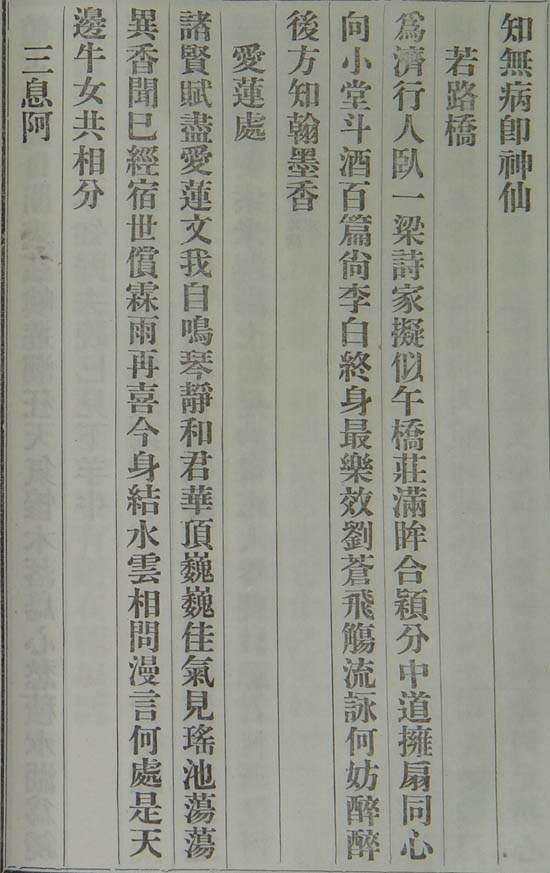 知無病卽神仙
若路橋
爲濟行人臥一梁詩家擬似午橋莊滿眸合穎分中道擁扇同心
向小堂斗酒百篇尙李白終身最樂效劉蒼飛觴流詠何妨醉醉
後方知翰墨香
愛蓮處
諸賢賦盡愛蓮文我自鳴琴靜和君華頂巍巍佳氣見瑤池蕩蕩
異香聞已經宿世償霖雨再喜今身結水雲相問漫言何處是天
邊牛女共相分
三息阿